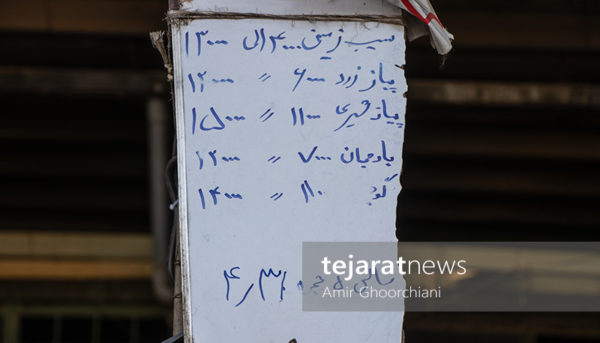 سیب زمینی ۴۰۰۰ الی ۱۳۰۰۰
پیاز زرد ۶۰۰۰ " ۱۲۰۰۰
پیاز قرمز ۱۱۰۰۰ " ۱۵۰۰۰
بادمجان ۷۰۰۰ " ۱۲۰۰۰
۱۴۰۰۰ "
۴٫۳۱
tejaratnews
Amir Ghoorchiani